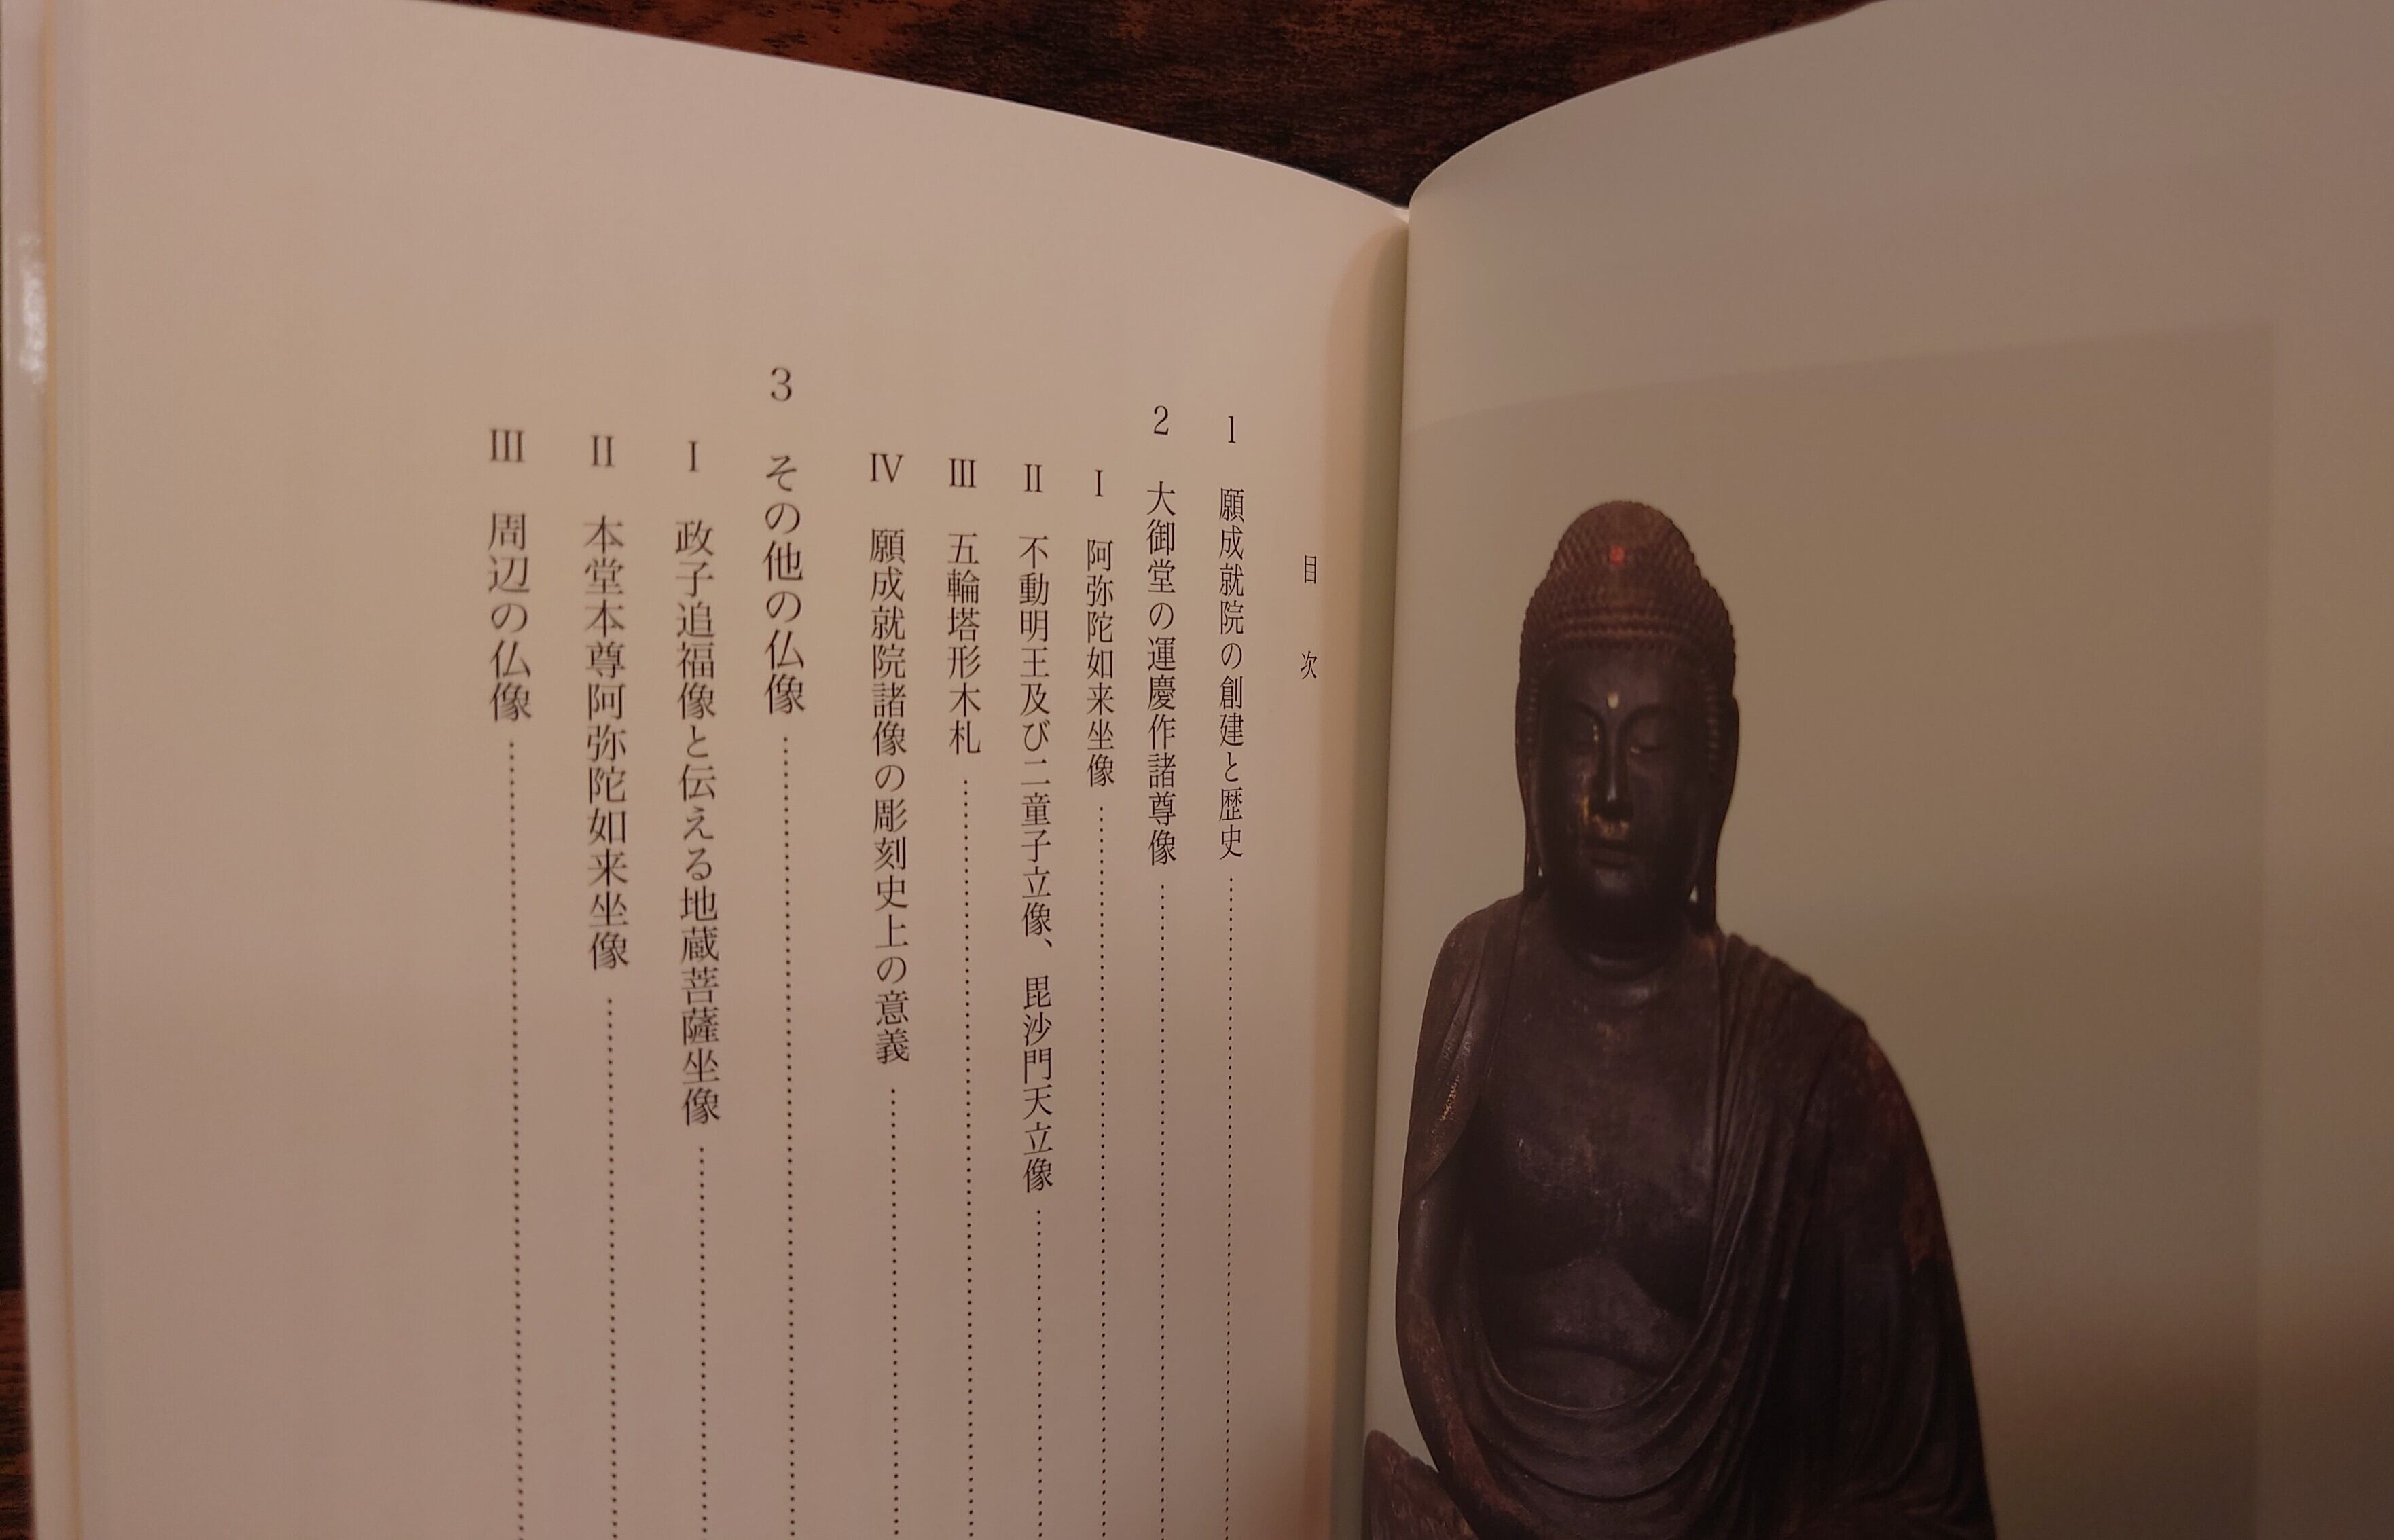 目次
1 願成就院の創建と歴史
2 大御堂の運慶作諸尊像
Ⅰ 阿弥陀如来坐像
Ⅱ 不動明王及び二童子立像、毘沙門天立像
Ⅲ 五輪塔形木札
Ⅳ 願成就院諸像の彫刻史上の意義
3 その他の仏像
Ⅰ 政子追福像と伝える地蔵菩薩坐像
Ⅱ 本堂本尊阿弥陀如来坐像
Ⅲ 周辺の仏像